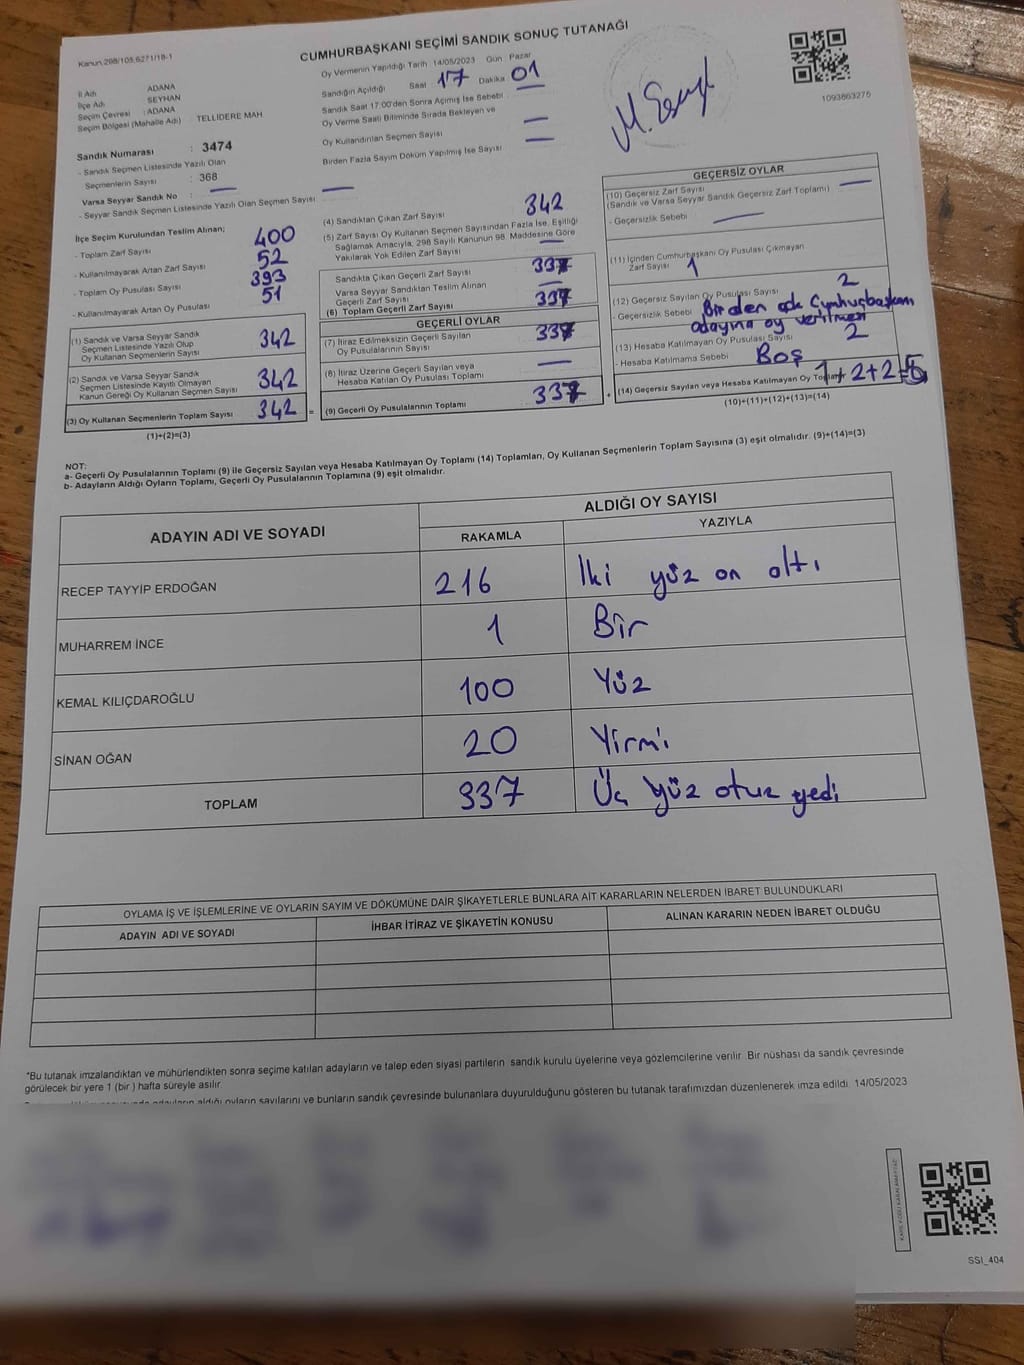 Kanun.298/105,6271/18-1
CUMHURBAŞKANI SEÇİMİ SANDIK SONUÇ TUTANAĞI
İl Adı ADANA
İlçe Adı SEYHAN
Seçim Çevresi : ADANA
Seçim Bölgesi (Mahalle Adı) : TELLIDERE MAH
Sandık Numarası : 3474
- Sandık Seçmen Listesinde Yazılı Olan
Seçmenlerin Sayısı : 368
Varsa Seyyar Sandık No :
- Seyyar Sandık Seçmen Listesinde Yazılı Olan Seçmen Sayısı
Oy Vermenin Yapıldığı Tarih 14/05/2023 Gün Pazar
Sandığın Açıldığı Saat 17 Dakika 01
Sandık Saat 17:00'den Sonra Açmış İse Sebebi
Oy Verme Saati Bitiminde Sırada Bekleyen ve
Oy Kullandırılan Seçmen Sayısı
Birden Fazla Sayım Döküm Yapılmış İse Sayısı
1093863275
İlçe Seçim Kurulundan Teslim Alınan;
- Toplam Zarf Sayısı 400
- Kullanılmayarak Artan Zarf Sayısı 52
- Toplam Oy Pusulası Sayısı 393
- Kullanılmayarak Artan Oy Pusulası 51
(1) Sandık ve Varsa Seyyar Sandık
Seçmen Listesinde Yazılı Olup
Oy Kullanan Seçmenlerin Sayısı 342
(2) Sandık ve Varsa Seyyar Sandık
Seçmen Listesinde Kayıtlı Olmayan
Kanun Gereği Oy Kullanan Seçmen Sayısı 342
(3) Oy Kullanan Seçmenlerin Toplam Sayısı 342 =
(1)+(2)=(3)
(4) Sandıktan Çıkan Zarf Sayısı 342
(5) Zarf Sayısı Oy Kullanan Seçmen Sayısından Fazla İse, Eşitliği
Sağlamak Amacıyla, 298 Sayılı Kanunun 98. Maddesine Göre
Yakılarak Yok Edilen Zarf Sayısı
Sandıkta Çıkan Geçerli Zarf Sayısı 337
Varsa Seyyar Sandıktan Teslim Alınan
Geçerli Zarf Sayısı
(6) Toplam Geçerli Zarf Sayısı 337
GEÇERLİ OYLAR
(7) İtiraz Edilmeksizin Geçerli Sayılan
Oy Pusulalarının Sayısı 337
(8) İtiraz Üzerine Geçerli Sayılan veya
Hesaba Katılan Oy Pusulası Toplamı
(9) Geçerli Oy Pusulalarının Toplamı 337 +
GEÇERSİZ OYLAR
(10) Geçersiz Zarf Sayısı
(Sandık ve Varsa Seyyar Sandık Geçersiz Zarf Toplamı)
- Geçersizlik Sebebi
(11) İçinden Cumhurbaşkanı Oy Pusulası Çıkmayan
Zarf Sayısı 1
(12) Geçersiz Sayılan Oy Pusulası Sayısı 2
- Geçersizlik Sebebi Birden çok Cumhurbaşkanı
adayına oy verilmesi
(13) Hesaba Katılmayan Oy Pusulası Sayısı 2
- Hesaba Katılmama Sebebi Boş
(14) Geçersiz Sayılan veya Hesaba Katılmayan Oy Toplamı 1+2+2=5
(10)+(11)+(12)+(13)=(14)
NOT:
a- Geçerli Oy Pusulalarının Toplamı (9) ile Geçersiz Sayılan veya Hesaba Katılmayan Oy Toplamı (14) Toplamları, Oy Kullanan Seçmenlerin Toplam Sayısına (3) eşit olmalıdır. (9)+(14)=(3)
b- Adayların Aldığı Oyların Toplamı, Geçerli Oy Pusulalarının Toplamına (9) eşit olmalıdır.
ADAYIN ADI VE SOYADI ALDIĞI OY SAYISI
RAKAMLA YAZIYLA
RECEP TAYYİP ERDOĞAN 216 İki yüz on altı
MUHARREM İNCE 1 Bir
KEMAL KILIÇDAROĞLU 100 Yüz
SİNAN OĞAN 20 Yirmi
TOPLAM 337 Üç yüz otuz yedi
OYLAMA İŞ VE İŞLEMLERİNE VE OYLARIN SAYIM VE DÖKÜMÜNE DAİR ŞİKAYETLERLE BUNLARA AİT KARARLARIN NELERDEN İBARET BULUNDUKLARI
ADAYIN ADI VE SOYADI İHBAR İTİRAZ VE ŞİKAYETİN KONUSU ALINAN KARARIN NEDEN İBARET OLDUĞU
*Bu tutanak imzalandıktan ve mühürlendikten sonra seçime katılan adayların ve talep eden siyasi partilerin sandık kurulu üyelerine veya gözlemcilerine verilir. Bir nüshası da sandık çevresinde
görülecek bir yere 1 (bir ) hafta süreyle asılır.
adayların aldığı oyların sayılarını ve bunların sandık çevresinde bulunanlara duyurulduğunu gösteren bu tutanak tarafımızdan düzenlenerek imza edildi. 14/05/2023
SSI_404